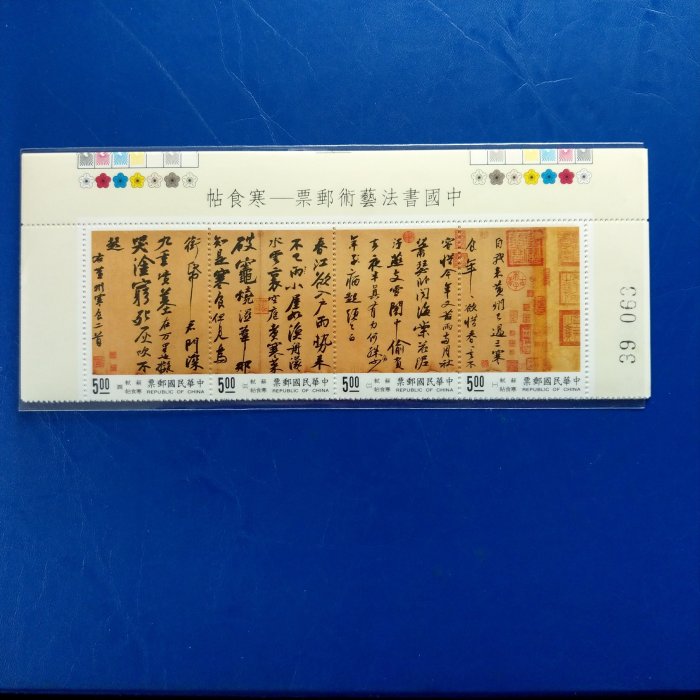 中國書法藝術郵票—寒食帖
自我來黃州已過三寒
食年年欲惜春春去不
容惜今年又苦雨兩月秋
蕭瑟臥聞海棠花泥
汙燕支雪闇中偷負
去夜半真有力何殊少
年子病起頭已白
春江欲入戶雨勢來
不已雨小屋如漁舟濛濛
水雲裏空庖煮寒菜
破竈燒濕葦那
知是寒食但見烏
銜帋君門深
九重墳墓在万里也擬
哭塗窮死灰吹不
起
右黃州寒食二首
中華民國郵票
REPUBLIC OF CHINA
蘇軾
寒食帖
5.00
中華民國郵票
REPUBLIC OF CHINA
蘇軾
寒食帖
5.00
中華民國郵票
REPUBLIC OF CHINA
蘇軾
寒食帖
5.00
中華民國郵票
REPUBLIC OF CHINA
蘇軾
寒食帖
5.00
39 063